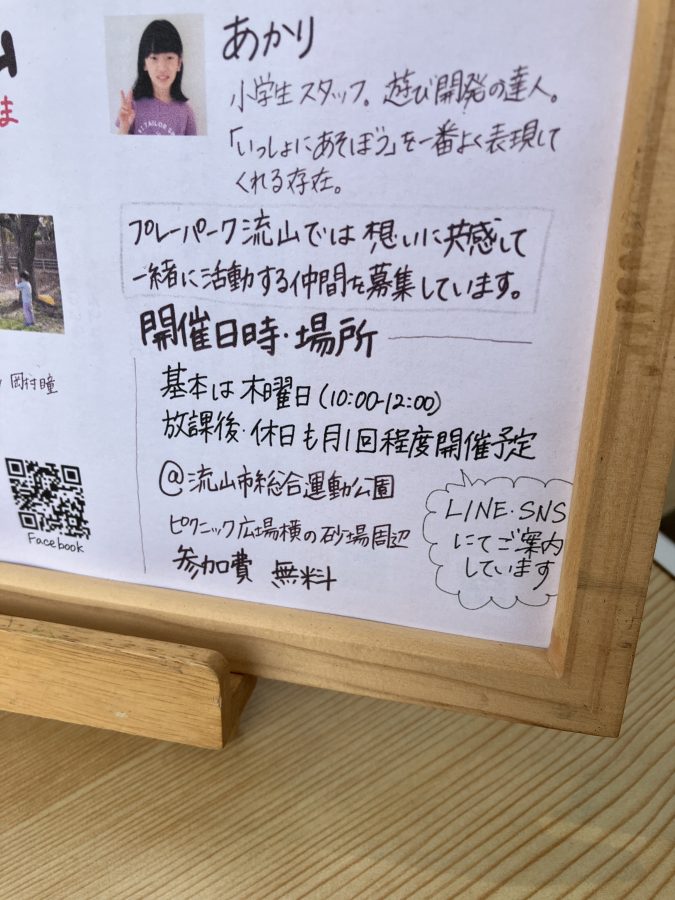 ま
あかり
小学生スタッフ。遊び開発の達人。
「いっしょにあそぼう」を一番よく表現して
くれる存在。
プレーパーク流山では想いに共感して
一緒に活動する仲間を募集しています。
開催日時・場所
岡村瞳
基本は木曜日(10:00-12:00)
放課後・休日も月1回程度開催予定
@流山市総合運動公園
ピクニック広場横の砂場周辺
参加費 無料
Facebook
LINE・SNS
にてご案内
しています